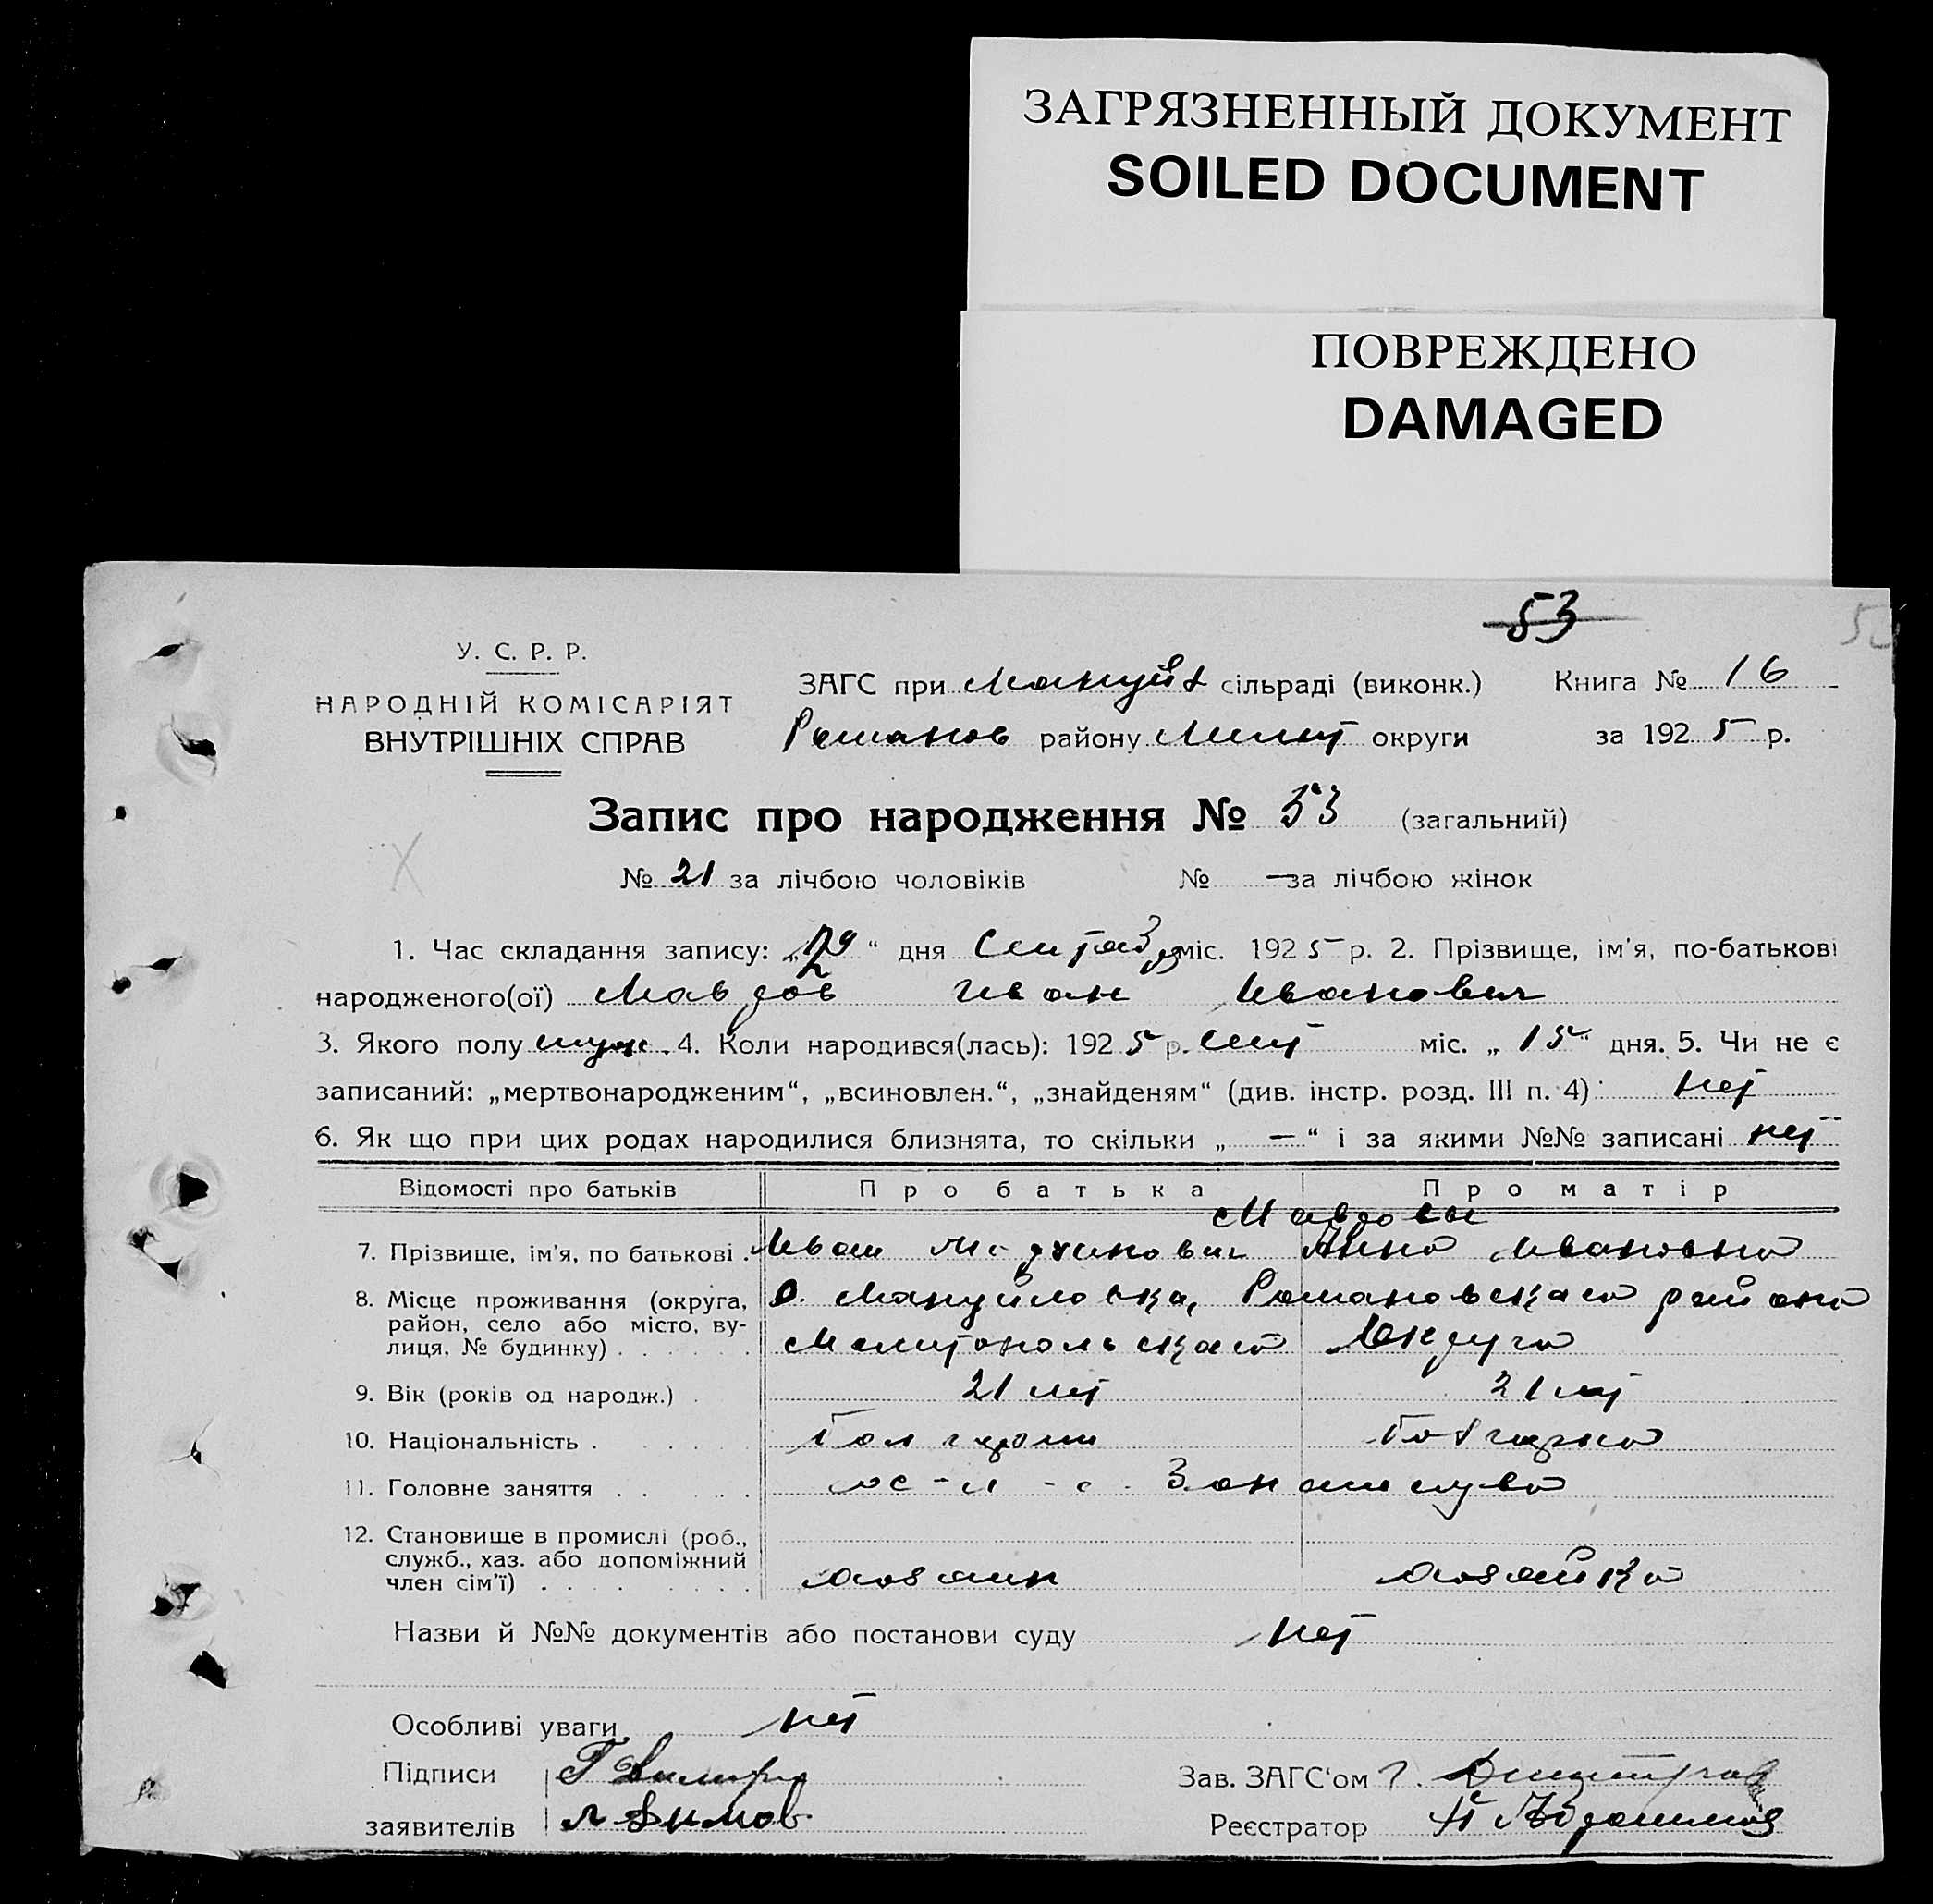 ЗАГРЯЗНЕННЫЙ ДОКУМЕНТ
SOILED DOCUMENT
ПОВРЕЖДЕНО
DAMAGED
53
У. С. Р. Р.
НАРОДНІЙ КОМІСАРІЯТ
ВНУТРІШНІХ СПРАВ
ЗАГС при Мануйл сільраді (виконк.) Книга № 16
Романов району Мелит округи за 1925 р.
Запис про народження № 53 (загальний)
№ 21 за лічбою чоловіків № — за лічбою жінок
1. Час складання запису: „ “ дня міс. 1925 р. 2. Прізвище, ім'я, по-батькові
народженого(ої) Мавров Иван Иванович
3. Якого полу муж. 4. Коли народився(лась): 1925 р. сент міс. „15“ дня. 5. Чи не є
записаний: „мертвонародженим“, „всиновлен.“, „знайденям“ (див. інстр. розд. III п. 4) нет
6. Як що при цих родах народилися близнята, то скільки „ — “ і за якими №№ записані нет
Відомості про батьків Про батька Про матір
Мавровы
7. Прізвище, ім'я, по батькові Иван Анна Ивановна
8. Місце проживання (округа, район, село або місто, вулиця, № будинку) с. Мануйловка, Романовскаго района
Мелитопольскаго Округа
9. Вік (років од народж.) 21 лет 21 лет
10. Національність Болгарин Болгарка
11. Головне заняття
12. Становище в промислі (роб., служб., хаз. або допоміжний член сім'ї) хозяин хозяйка
Назви й №№ документів або постанови суду нет
Особливі уваги нет
Підписи Зав. ЗАГС'ом Г. Димитров
заявителів Димов Реєстратор